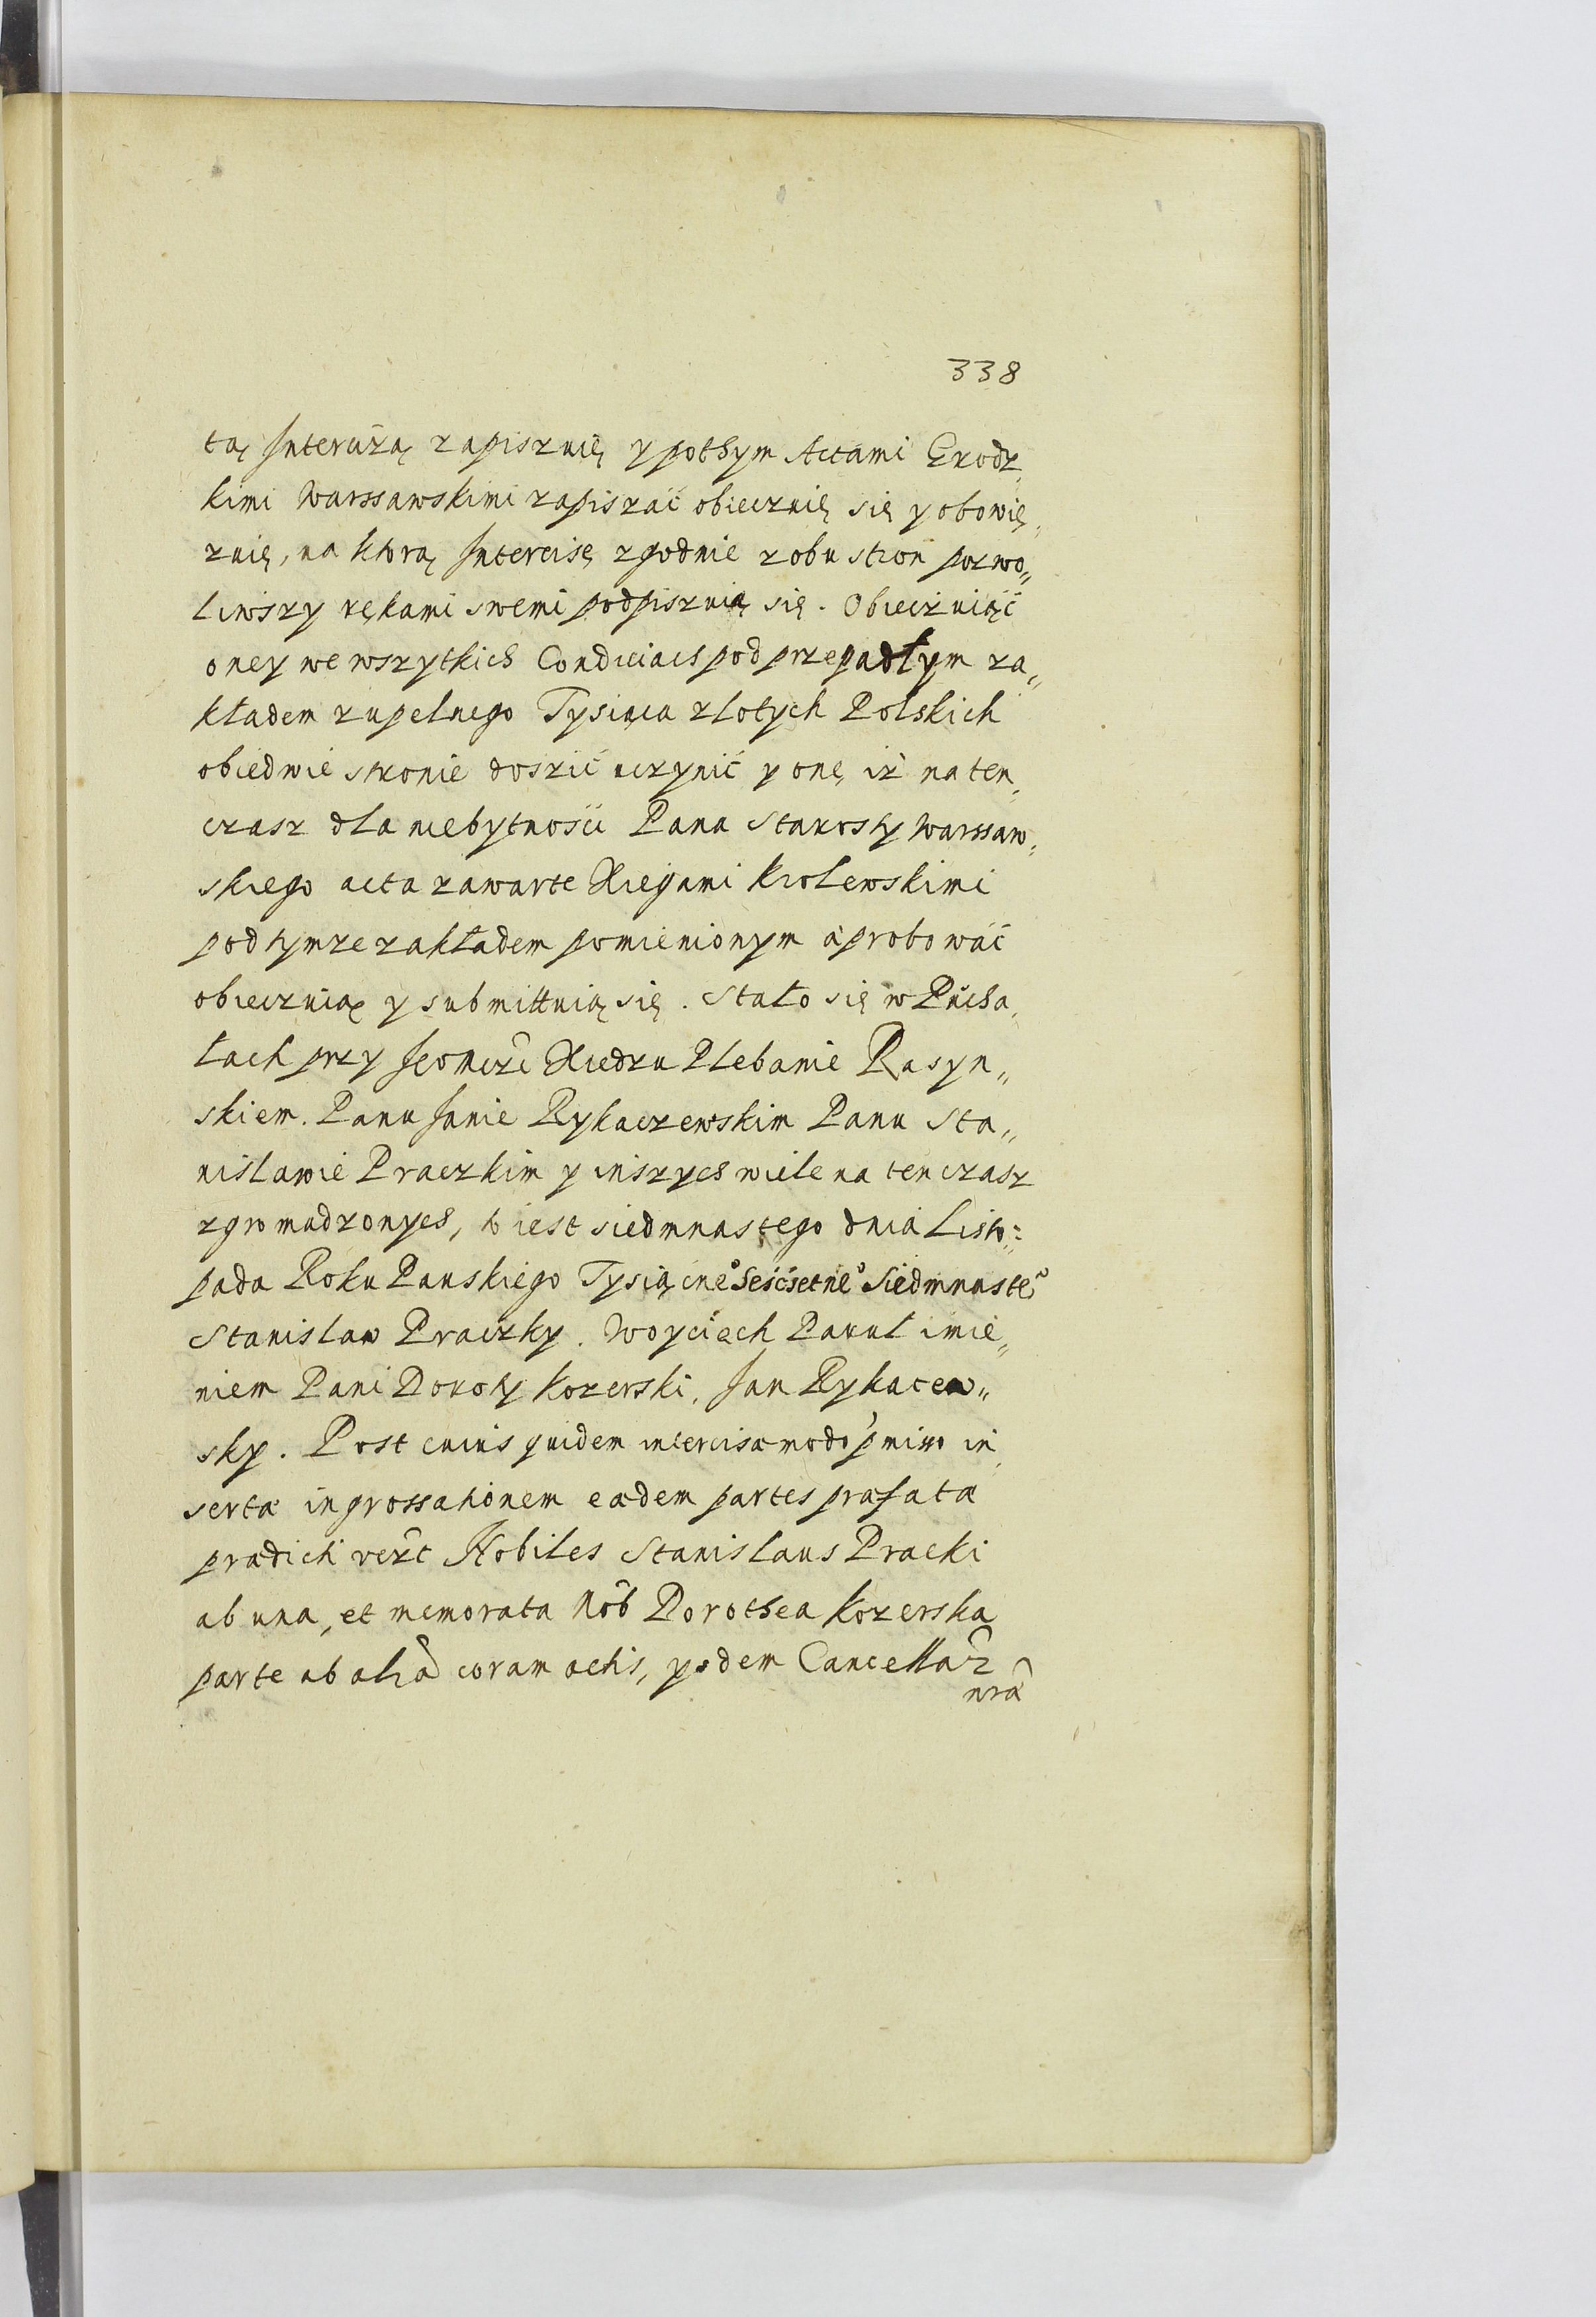 338
tą Intercizą zapisznię y pothym Actami Grodz,
kimi Warssawskimi zapiszać obiecznię się y obowię,
znię, na ktorą Intercisę zgodnie z obu stron pozwo„
liwszy rękami swemi podpisznią się. Obieczniąć
oney we wszytkich Condiciach pod przepadłym za„
kładem zupelnego Tysiąca zlotych Polskich
obiedwie stronie doszić uczynić y onę iż na ten,
czasz dla niebytnosci Pana Starosty Warssaw,
skiego acta zawarte Xięgami Krolewskimi
pod tymze zakładem pomienionym aprobować
obiecznią y submittnią się. Stało się w Pucha,
łach przy Jeomczi Xiedzu Plebanie Rasyn„
skiem. Panu Janie Rykaczewskim Panu Sta„
nislawie Praczkim y inszych wiele na ten czasz
zgromadzonych, to iest siedmnastego dnia Listo:
pada Roku Panskiego Tysiącne° Seśćsetne° Siedmnaste°
Stanislaw Praczky. Woyciech Pakul imie„
niem Pani Doroty Kozerski, Jan Rykacew„
sky. Post cuius quidem intercisa modo pmisso in,
serta ingrossationem eadem partes prafata
pradicti verc Nobiles Stanislaus Pracki
ab una, et memorata Nob Dorothea Kozerska
parte ab alia coram actis, pdem Cancellar
nra